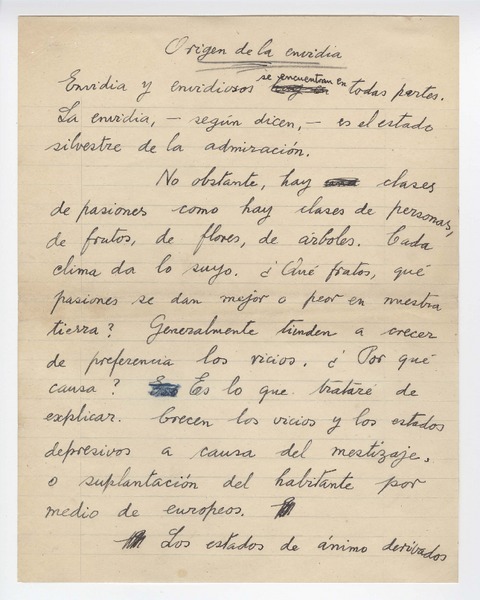 Origen de la envidia
Envidia y envidiosos se encuentran en todas partes.
La envidia, - según dicen, - es el estado
silvestre de la admiración.
No obstante, hay clases
de pasiones como hay clases de personas,
de frutos, de flores, de árboles. Cada
clima da lo suyo. ¿Qué frutos, qué
pasiones se dan mejor o peor en nuestra
tierra? Generalmente tienden a crecer
de preferencia los vicios. ¿Por qué
causa? Es lo que trataré de
explicar. Crecen los vicios y los estados
depresivos a causa del mestizaje,
o suplantación del habitante por
medio de europeos.
Los estados de ánimo derivados